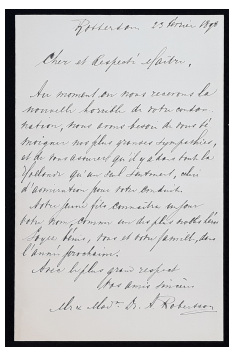 Rotterdam 23 février 1898
Cher et respecté Maître,
Au moment où nous recevons la
nouvelle horrible de votre condam-
nation, nous avons besoin de vous té-
moigner nos plus grandes sympathies,
et de vous assurer qu'il y a dans toute la
Hollande qu'un seul sentiment, celui
d'admiration pour votre conduite.
Notre jeune fils connaîtra un jour
votre nom, comme un des plus nobles
Soyez bénis, vous et votre famille, dans
l'année prochaine.
Avec le plus grand respect
Vos amis sincères
Mr & Mad. Dr. A Robertson